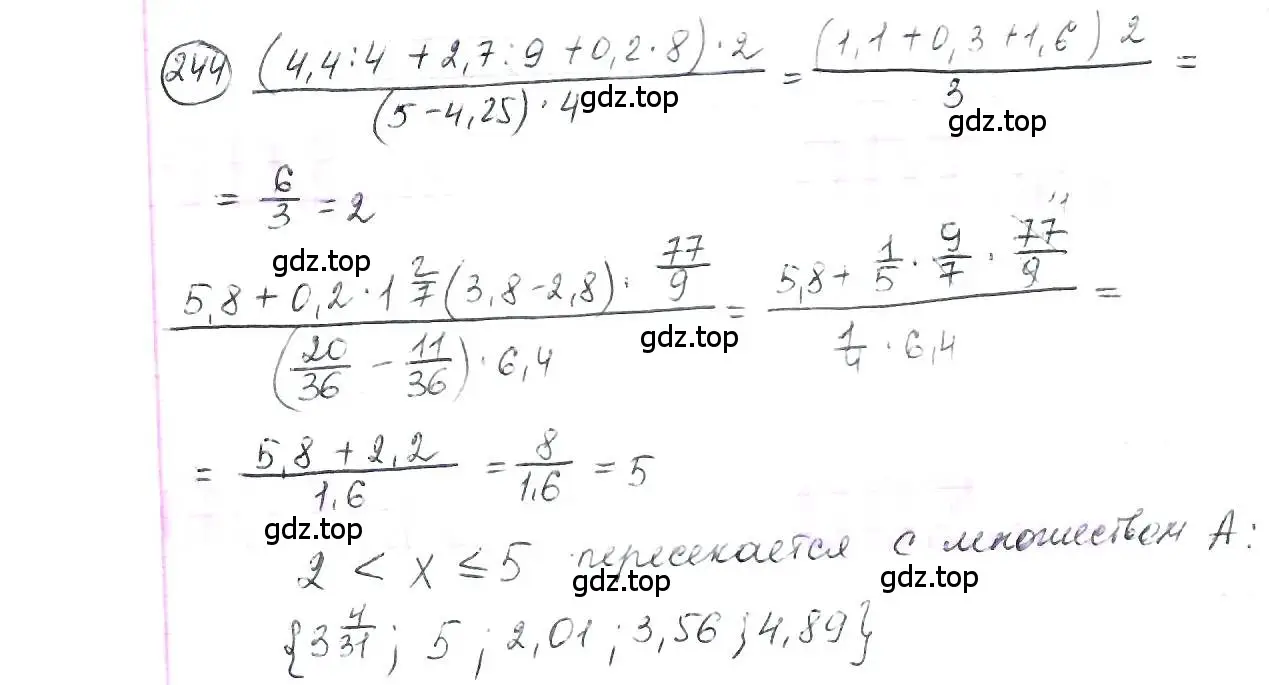 244 (4,4:4 + 2,7:9 + 0,2·8)·2 / (5-4,25)·4 = (1,1+0,3+1,6) 2 / 3 =
gdz.top
gdz.top
= 6/3 = 2
gdz.top
5,8 + 0,2 · 1 2/7 (3,8-2,8) · 77/9 / (20/36 - 11/36) · 6,4 = 5,8 + 1/5 · 9/7 · 77/9 11 / 1/4 · 6,4 =
gdz.top
= 5,8 + 2,2 / 1,6 = 8/1,6 = 5
gdz.top
2 < x ≤ 5 пересекается с множеством А:
gdz.top
gdz.top
{3 4/31; 5; 2,01; 3,56; 4,89}